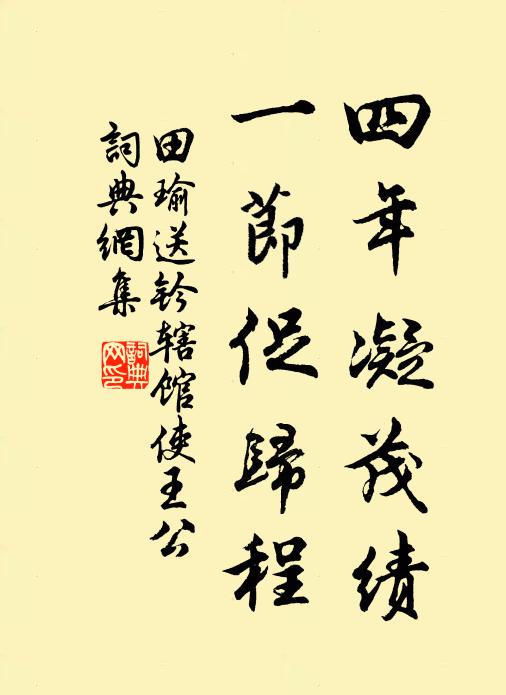 四年凝茂绩
一節促歸程
田瑜送鈐辖馆使王公
詞典網集
詞典
网印